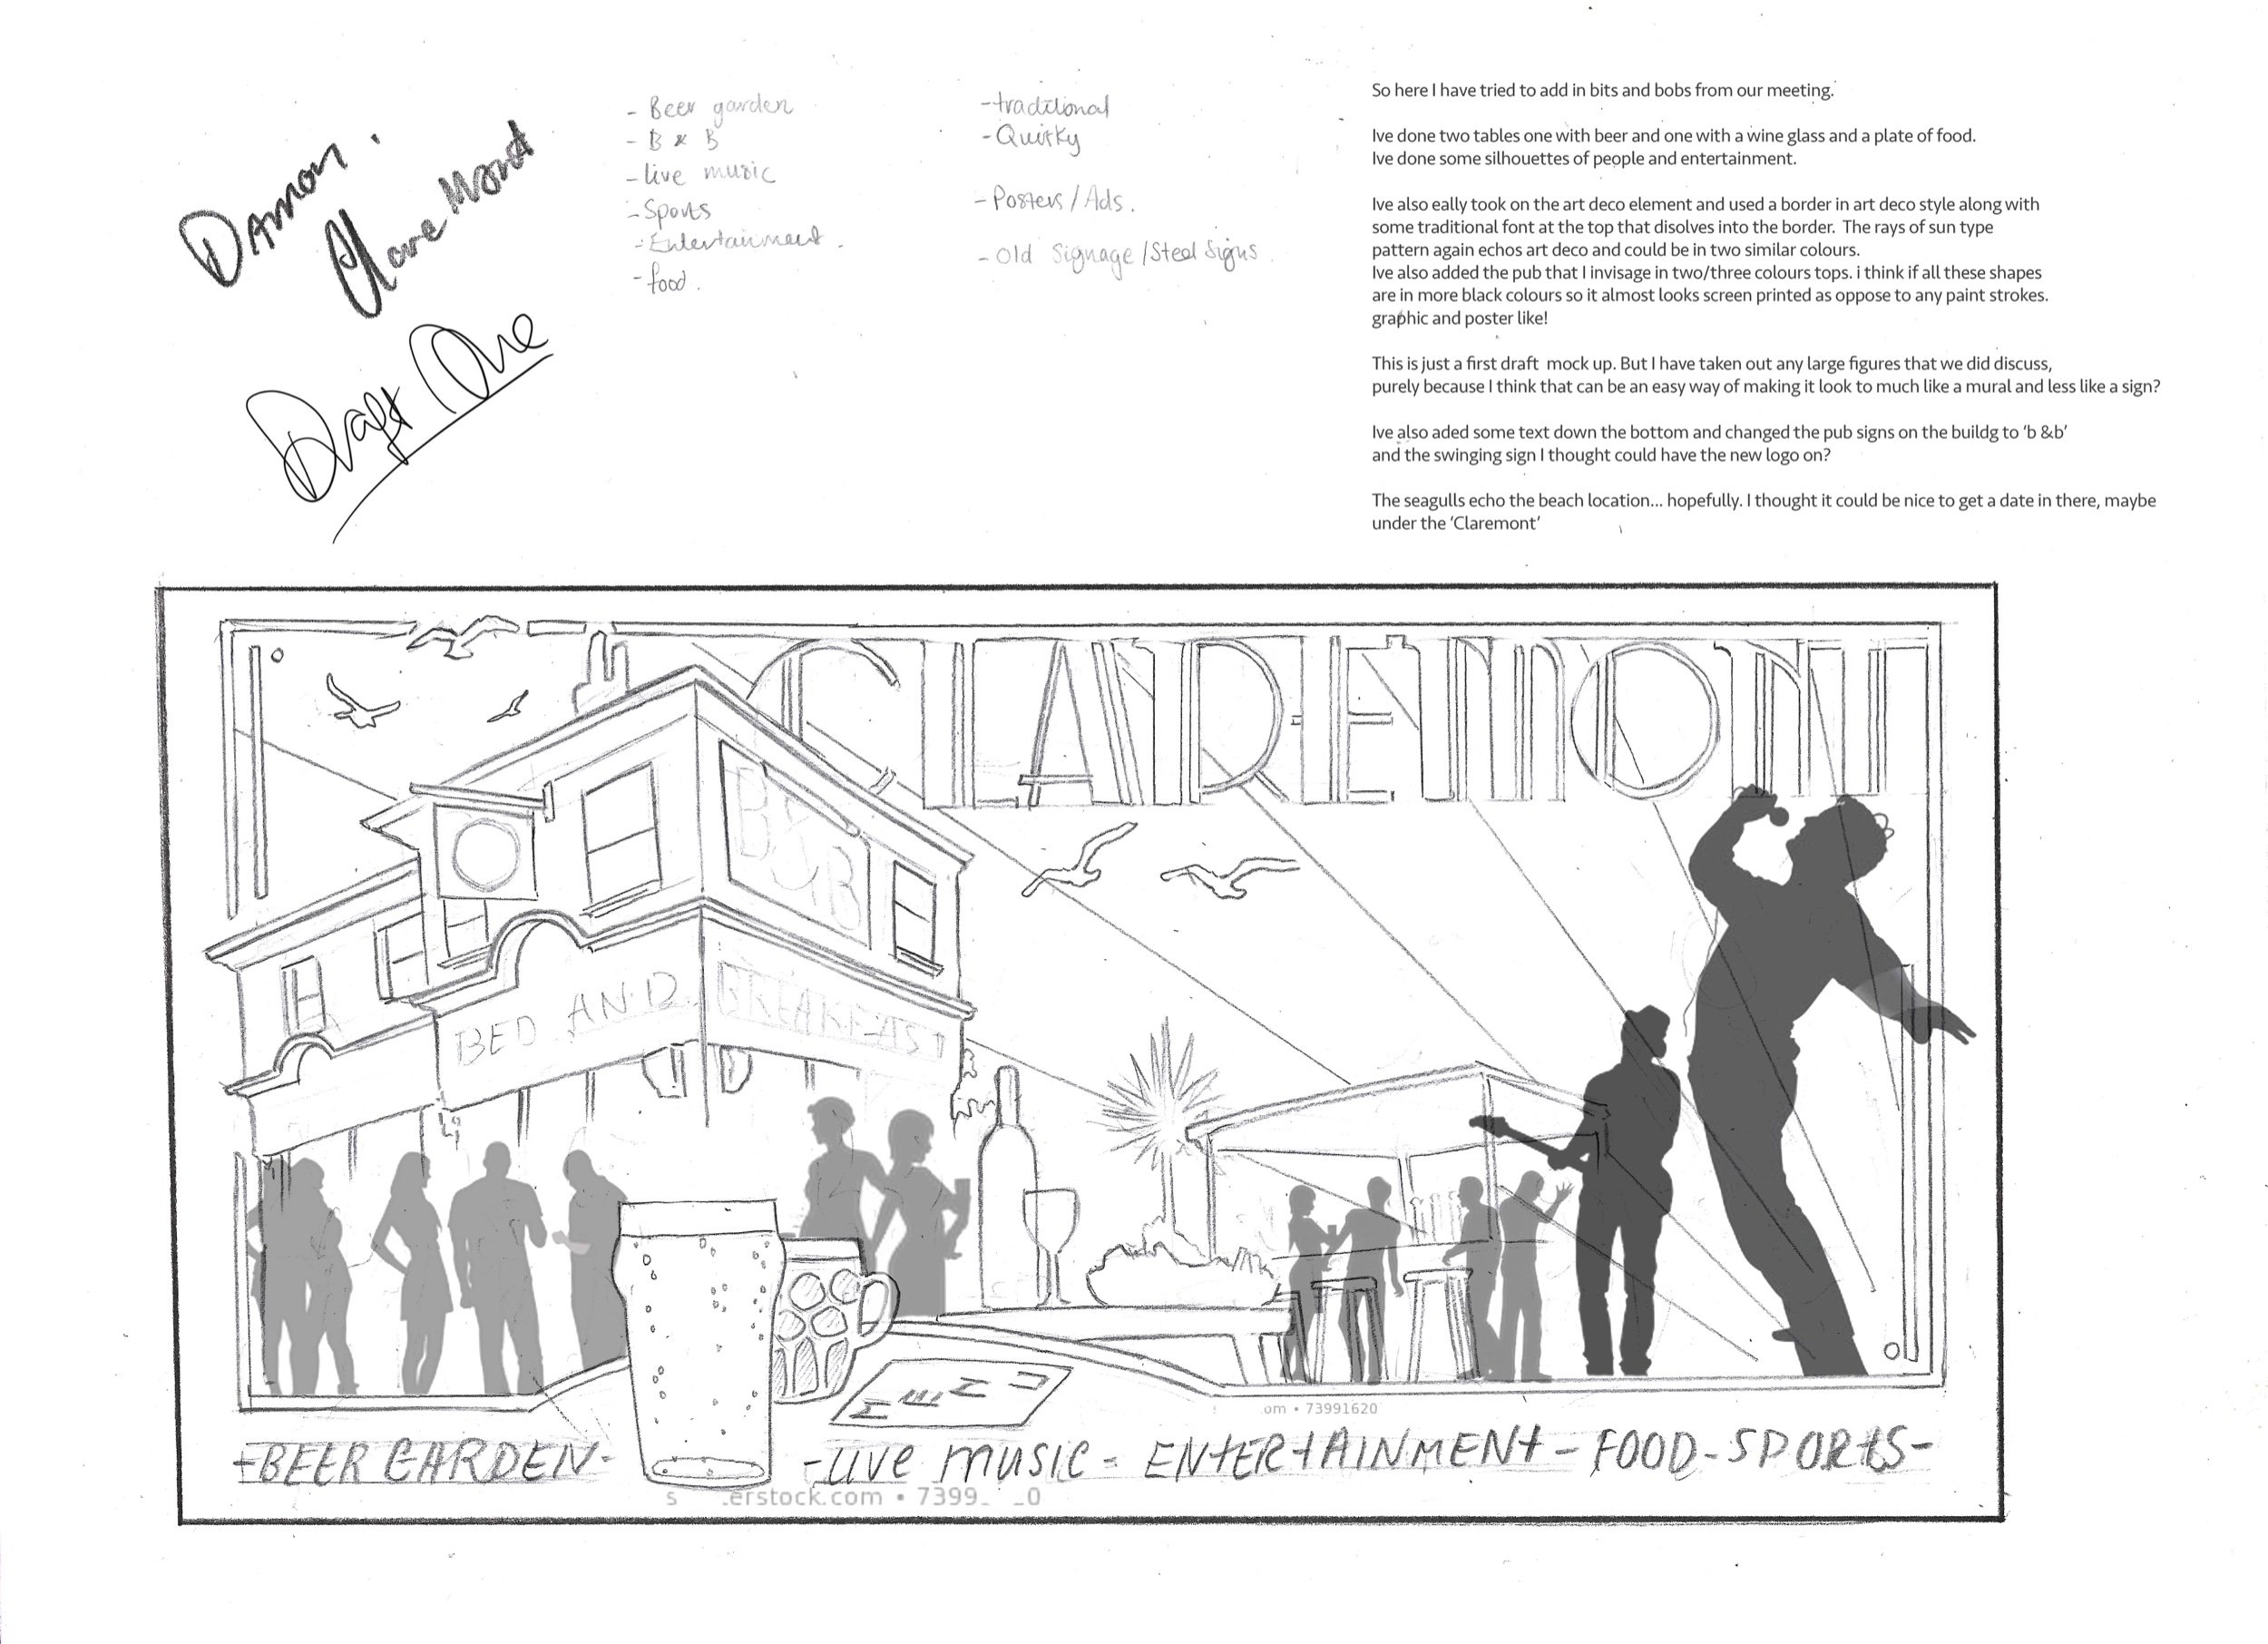 Damon.
Claremont
Draft One
- Beer garden
- B & B
- live music
- Sports
- Entertainment.
- food.
- traditional
- Quirky
- Posters/Ads.
- Old Signage/Steel Signs.
So here I have tried to add in bits and bobs from our meeting.
Ive done two tables one with beer and one with a wine glass and a plate of food.
Ive done some silhouettes of people and entertainment.
Ive also eally took on the art deco element and used a border in art deco style along with
some traditional font at the top that disolves into the border. The rays of sun type
pattern again echos art deco and could be in two similar colours.
Ive also added the pub that I invisage in two/three colours tops. i think if all these shapes
are in more black colours so it almost looks screen printed as oppose to any paint strokes.
graphic and poster like!
This is just a first draft mock up. But I have taken out any large figures that we did discuss,
purely because I think that can be an easy way of making it look to much like a mural and less like a sign?
Ive also aded some text down the bottom and changed the pub signs on the buildg to ‘b &b’
and the swinging sign I thought could have the new logo on?
The seagulls echo the beach location... hopefully. I thought it could be nice to get a date in there, maybe
under the ‘Claremont’
CLAREMONT
B&B
BED AND BREAKFAST
MENU
om • 73991620
-BEER GARDEN- -live music- ENTERTAINMENT-FOOD-SPORTS-
erstock.com • 7399